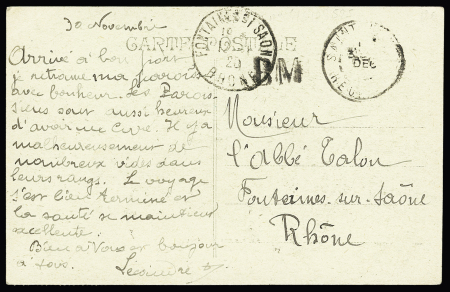 30 Novembre
CARTE POSTALE
FONTAINES-ST-SAONE
RHONE
20
BM
SAINT
DEC
Arrivé à bon port
je retrouve ma paroisse
avec bonheur. Les Parois-
siens sont aussi heureux
d'avoir un Curé. Il y a
malheureusement de
nombreux vides dans
leurs rangs. Le voyage
s'est bien terminé et
la santé se maintient
excellente.
Bien à Vous et bonjour
à tous.
Monsieur
l'Abbé Talon
Fontaines-sur-Saône
Rhône